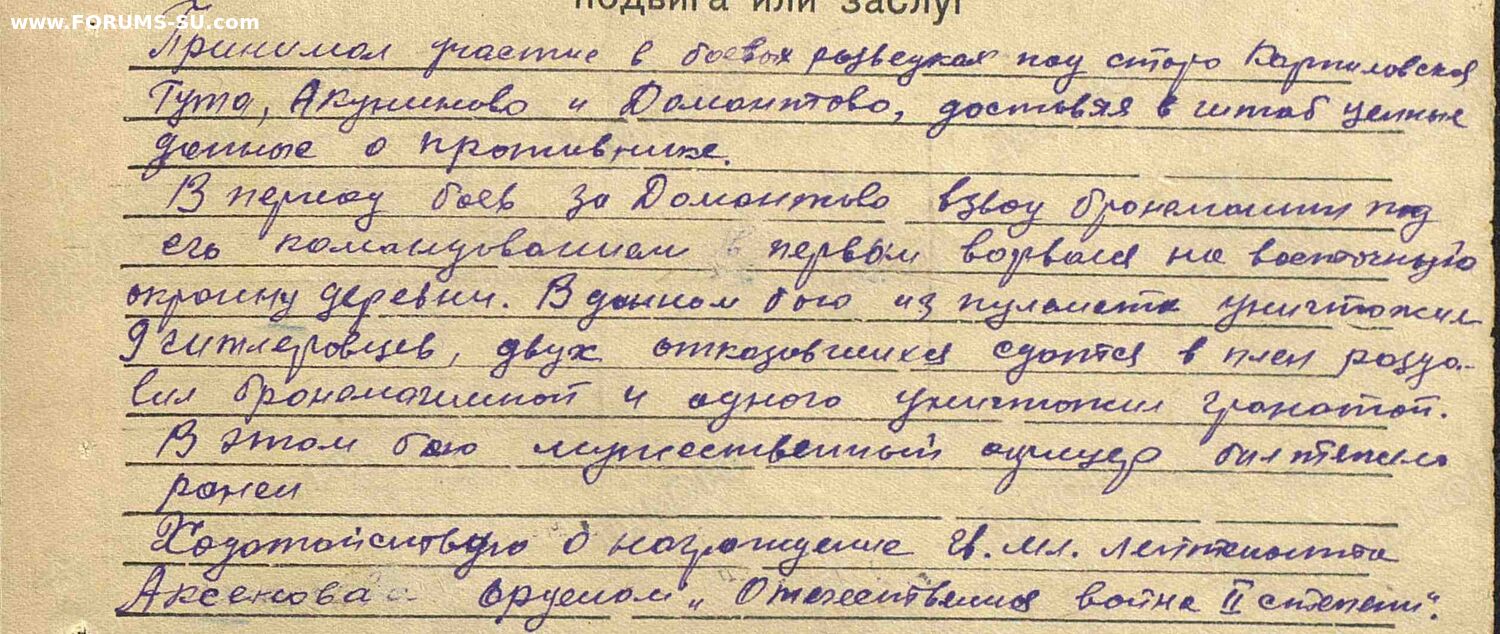 www.FORUMS-SU.com
подвига или заслуг
Принимал участие в боевых разведках под старо Карпиловская
Гута, Акуниново и Домонтово, доставяя в штаб ценные
данные о противнике.
В период боев за Домонтово взвод бронемашин под
его командованием первым ворвался на восточную
окраину деревни. В данном бою из пулемета уничтожил
9 гитлеровцев, двух отказавшихся сдатся в плен разда-
вил бронемашиной и одного уничтожил гранатой.
В этом бою мужественный офицер был тяжело
ранен
Ходатайствую о награждение гв. мл. лейтенанта
Аксенова орденом „Отечественная война II степени".